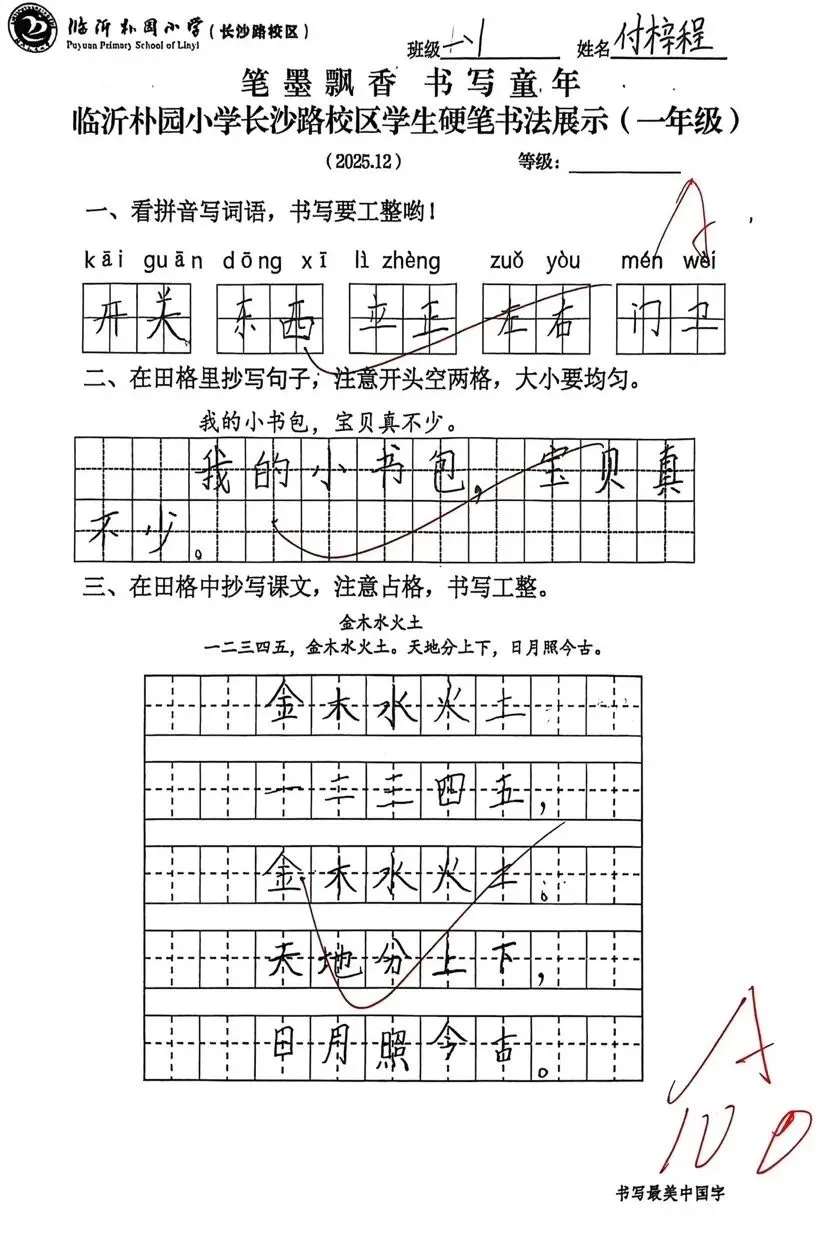 临沂朴园小学(长沙路校区)
Puyuan Primary School of Linyi
班级 一八1 姓名 付梓程
笔墨飘香 书写童年
临沂朴园小学长沙路校区学生硬笔书法展示(一年级)
(2025.12) 等级:
A
一、看拼音写词语,书写要工整哟!
kāi guān dōng xī lì zhèng zuǒ yòu mén wèi
开关 东西 立正 左右 门卫
二、在田格里抄写句子,注意开头空两格,大小要均匀。
我的小书包,宝贝真不少。
我的小书包,宝贝真
不少。
三、在田格中抄写课文,注意占格,书写工整。
金木水火土
一二三四五,金木水火土。天地分上下,日月照今古。
金木水火土
一二三四五,
金木水火土。
天地分上下,
日月照今古。
A
100
书写最美中国字